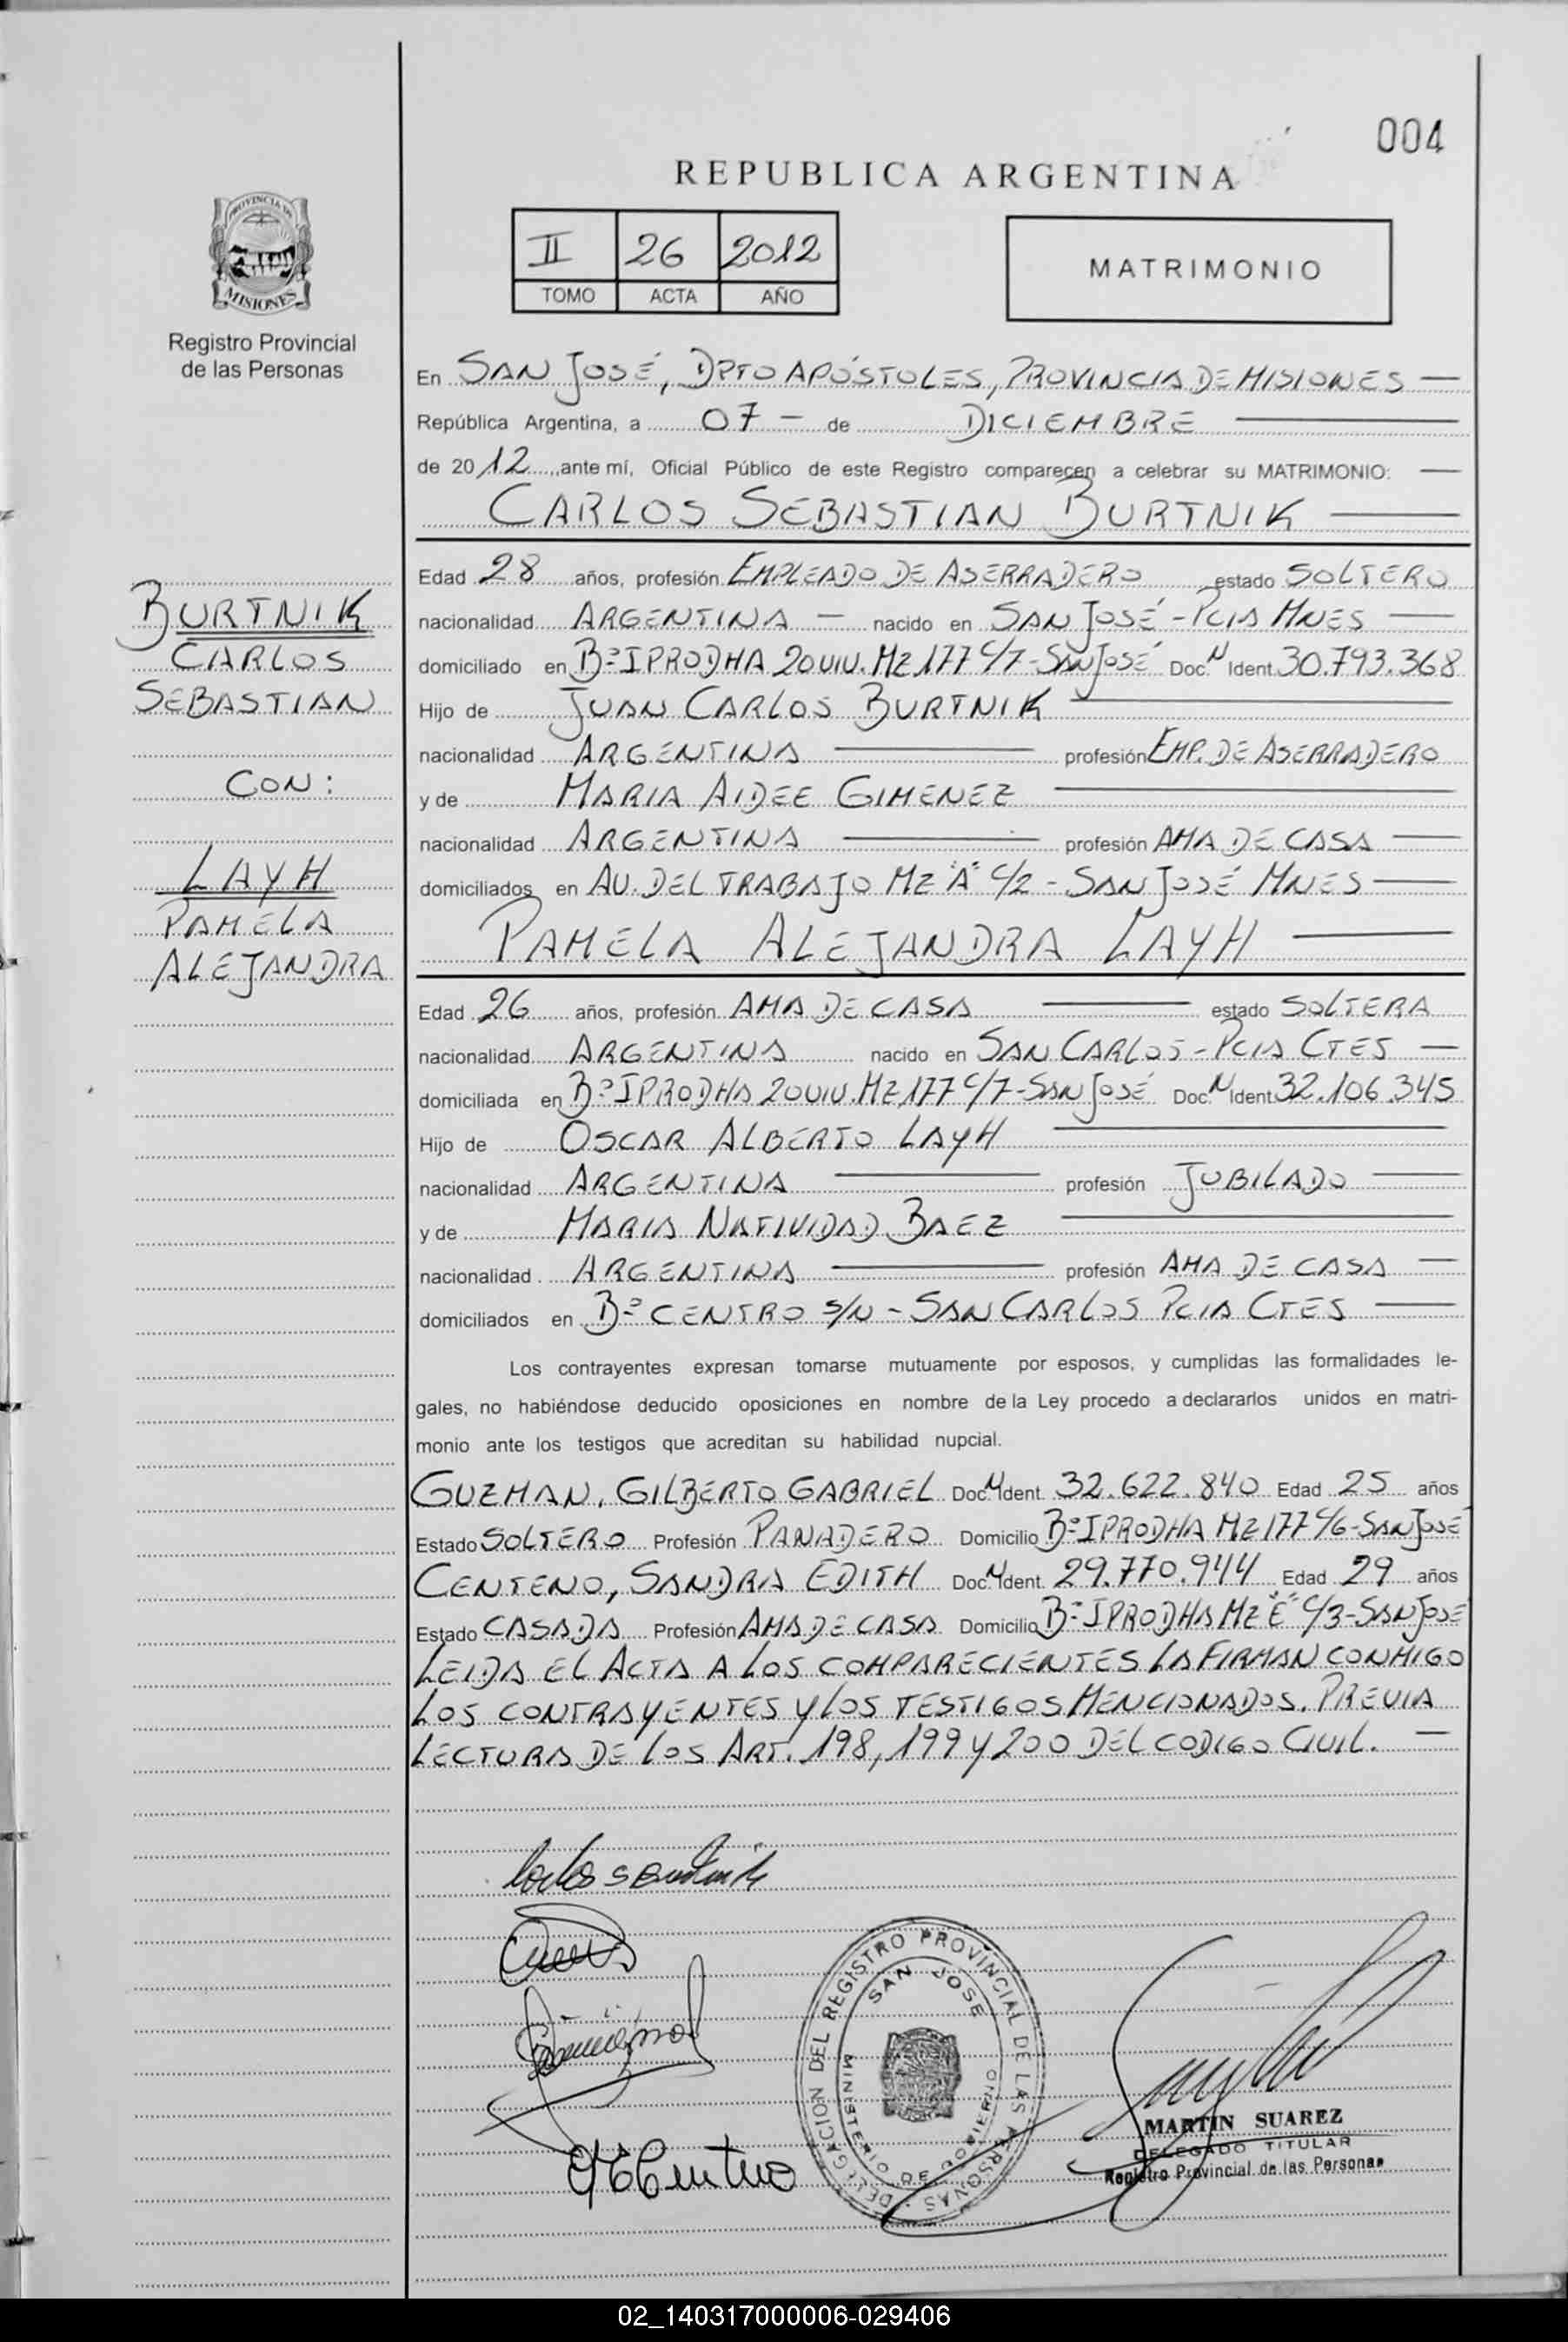 004
REPUBLICA ARGENTINA
II 26 2012
TOMO ACTA AÑO
MATRIMONIO
PROVINCIA DE
MISIONES
Registro Provincial
de las Personas
En SAN JOSÉ, DPTO APÓSTOLES, PROVINCIA DE MISIONES —
República Argentina, a 07 - de DICIEMBRE —
de 2012, ante mí, Oficial Público de este Registro comparecen a celebrar su MATRIMONIO: —
CARLOS SEBASTIAN BURTNIK —
BURTNIK
CARLOS
SEBASTIAN
CON:
LAYH
PAMELA
ALEJANDRA
Edad 28 años, profesión EMPLEADO DE ASERRADERO estado SOLTERO
nacionalidad ARGENTINA — nacido en SAN JOSÉ - PCIA MNES —
domiciliado en Bº IPRODHA 20 VIV. MZ 177 C/7 - SAN JOSÉ Doc. N Ident. 30.793.368
Hijo de JUAN CARLOS BURTNIK —
nacionalidad ARGENTINA — profesión EMP. DE ASERRADERO
y de MARIA AIDEE GIMENEZ —
nacionalidad ARGENTINA — profesión AMA DE CASA —
domiciliados en AV. DEL TRABAJO MZ "A" C/2 - SAN JOSÉ MNES —
PAMELA ALEJANDRA LAYH —
Edad 26 años, profesión AMA DE CASA — estado SOLTERA
nacionalidad ARGENTINA nacido en SAN CARLOS - PCIA CTES —
domiciliada en Bº IPRODHA 20 VIV. MZ 177 C/7 - SAN JOSÉ Doc. N Ident. 32.106.345
Hijo de OSCAR ALBERTO LAYH —
nacionalidad ARGENTINA — profesión JUBILADO —
y de MARIA NATIVIDAD BAEZ —
nacionalidad ARGENTINA — profesión AMA DE CASA —
domiciliados en Bº CENTRO S/N - SAN CARLOS PCIA CTES —
Los contrayentes expresan tomarse mutuamente por esposos, y cumplidas las formalidades le-
gales, no habiéndose deducido oposiciones en nombre de la Ley procedo a declararlos unidos en matri-
monio ante los testigos que acreditan su habilidad nupcial.
GUZMAN, GILBERTO GABRIEL Doc. N Ident. 32.622.840 Edad 25 años
Estado SOLTERO Profesión PANADERO Domicilio Bº IPRODHA MZ 177 C/6 - SAN JOSÉ
CENTENO, SANDRA EDITH Doc. N Ident. 29.770.944 Edad 29 años
Estado CASADA Profesión AMA DE CASA Domicilio Bº IPRODHA MZ "E" C/3 - SAN JOSÉ
LEIDA EL ACTA A LOS COMPARECIENTES LA FIRMAN CONMIGO
LOS CONTRAYENTES Y LOS TESTIGOS MENCIONADOS. PREVIA
LECTURA DE LOS ART. 198, 199 Y 200 DEL CODIGO CIVIL. —
DELEGACION DEL REGISTRO PROVINCIAL DE LAS PERSONAS
SAN JOSE
MINISTERIO DE GOBIERNO
MARTIN SUAREZ
DELEGADO TITULAR
Registro Provincial de las Personas
02_140317000006-029406